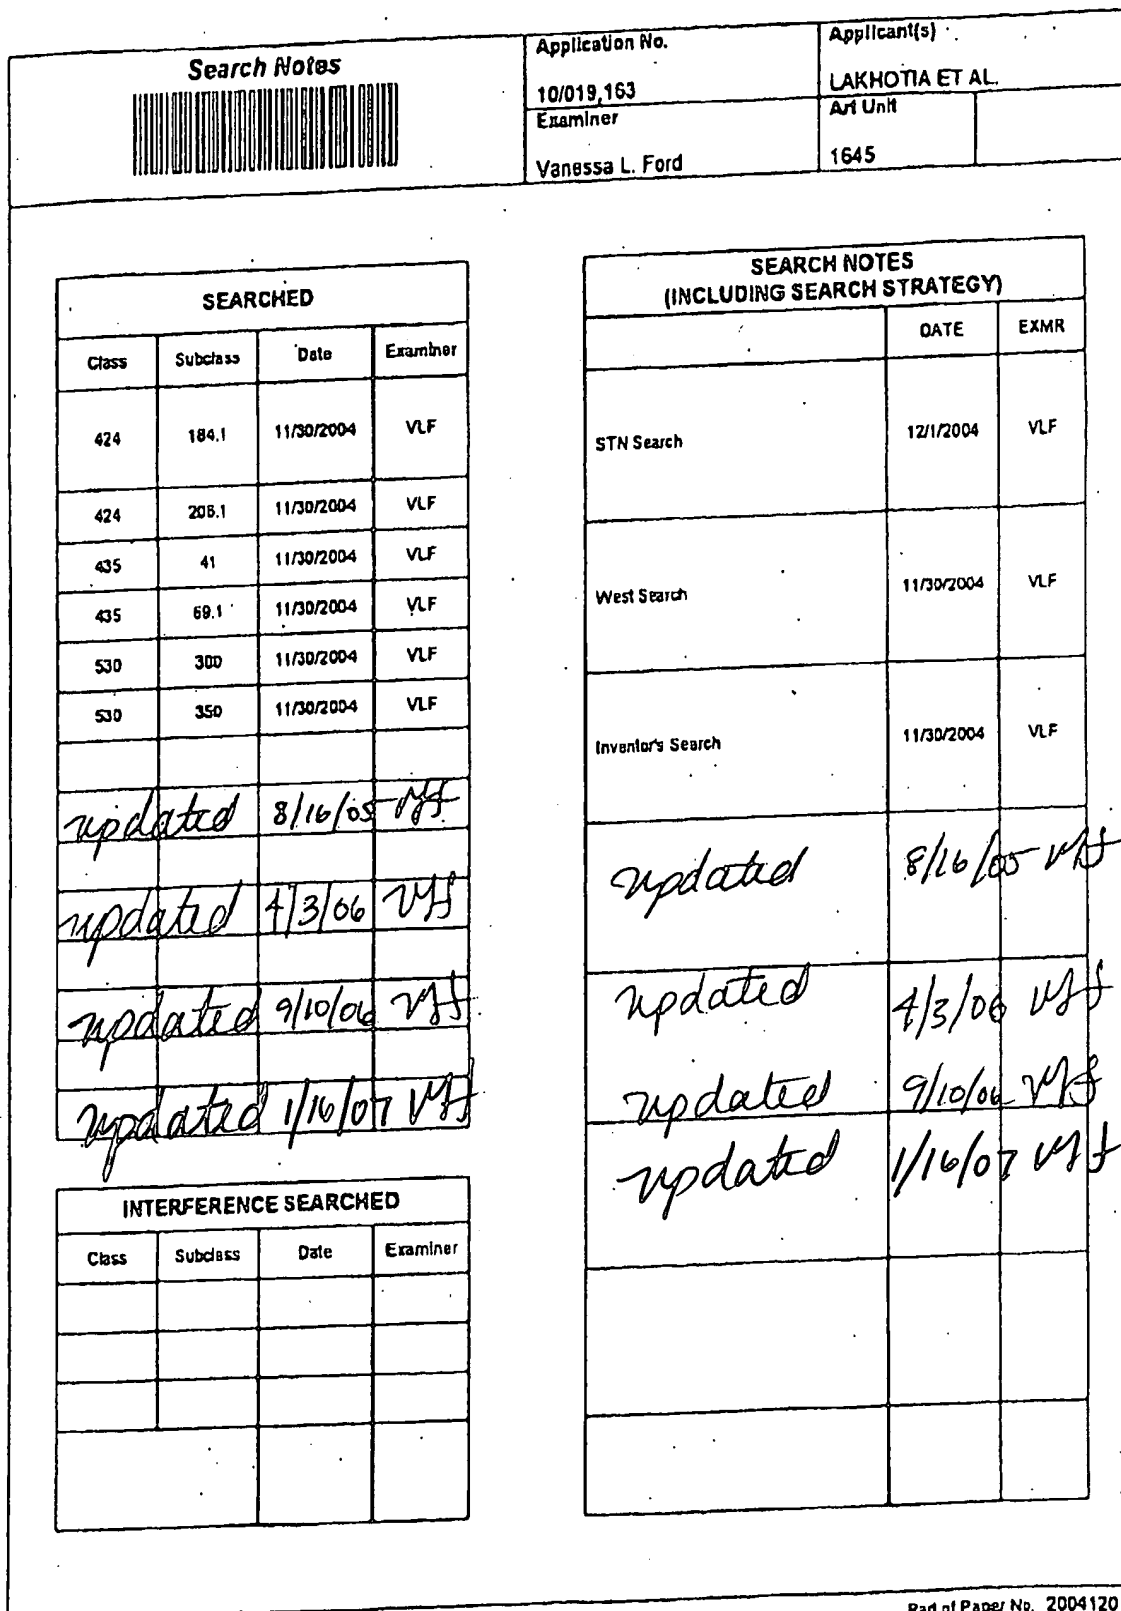 Search Notes
Application No.
10/019,163
Examiner
Vanessa L. Ford
Applicant(s)
LAKHOTIA ET AL.
Art Unit
1645
SEARCHED
Class Subclass Date Examiner
424 184.1 11/30/2004 VLF
424 206.1 11/30/2004 VLF
435 41 11/30/2004 VLF
435 69.1 11/30/2004 VLF
530 300 11/30/2004 VLF
530 350 11/30/2004 VLF
updated 8/16/05 vlf
updated 4/3/06 vlf
updated 9/10/06 vlf
updated 1/16/07 vlf
INTERFERENCE SEARCHED
Class Subclass Date Examiner
SEARCH NOTES
(INCLUDING SEARCH STRATEGY)
DATE EXMR
STN Search 12/1/2004 VLF
West Search 11/30/2004 VLF
Inventor's Search 11/30/2004 VLF
updated 8/16/05 vlf
updated 4/3/06 vlf
updated 9/10/06 vlf
updated 1/16/07 vlf
Part of Paper No. 2004120